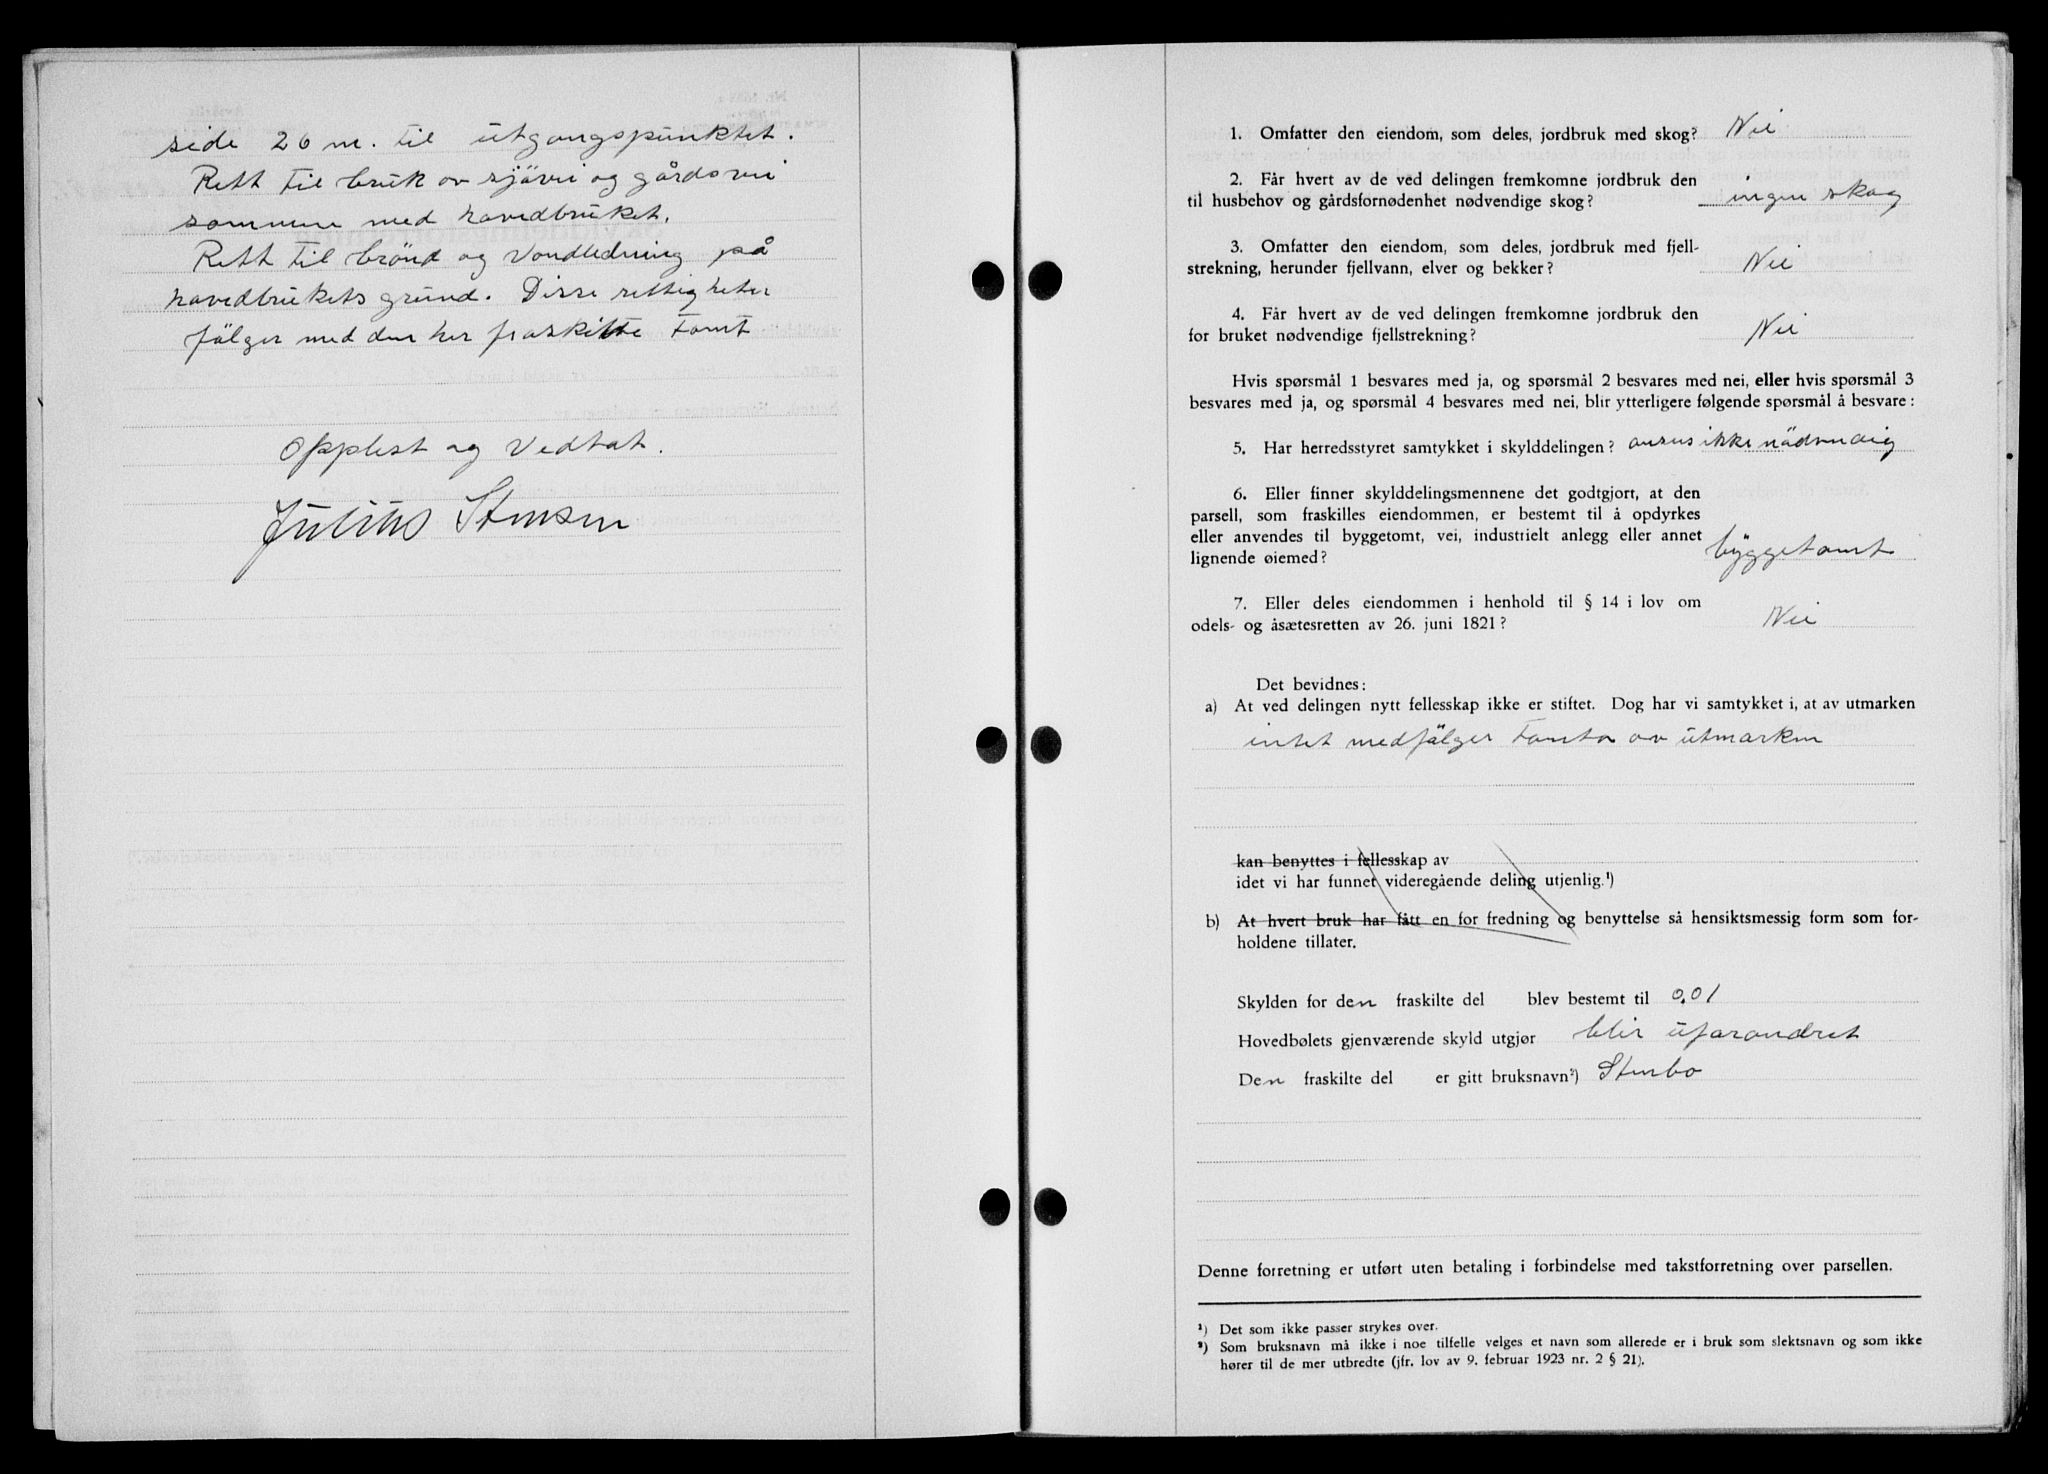 side 26 m. til utgangspunktet.
Rett til bruk av sjövei og gårdsvei
sammen med hovedbruket.
Rett til brönd og Vandledning på
hovedbrukets grund. Disse rettigheter
fölger med den her fraskilte Tomt
Opplest og Vedtat.
Julius Stensen
1. Omfatter den eiendom, som deles, jordbruk med skog? Nei
2. Får hvert av de ved delingen fremkomne jordbruk den
til husbehov og gårdsfornødenhet nødvendige skog? ingen skog
3. Omfatter den eiendom, som deles, jordbruk med fjell-
strekning, herunder fjellvann, elver og bekker? Nei
4. Får hvert av de ved delingen fremkomne jordbruk den
for bruket nødvendige fjellstrekning? Nei
Hvis spørsmål 1 besvares med ja, og spørsmål 2 besvares med nei, eller hvis spørsmål 3
besvares med ja, og spørsmål 4 besvares med nei, blir ytterligere følgende spørsmål å besvare:
5. Har herredsstyret samtykket i skylddelingen? anses ikke nödvendig
6. Eller finner skylddelingsmennene det godtgjort, at den
parsell, som fraskilles eiendommen, er bestemt til å opdyrkes
eller anvendes til byggetomt, vei, industrielt anlegg eller annet
lignende øiemed? byggetomt
7. Eller deles eiendommen i henhold til § 14 i lov om
odels- og åsætesretten av 26. juni 1821? Nei
Det bevidnes:
a) At ved delingen nytt fellesskap ikke er stiftet. Dog har vi samtykket i, at av utmarken
intet medfölger Tomta av utmarken
kan benyttes i fellesskap av
idet vi har funnet videregående deling utjenlig.¹)
b) At hvert bruk har fått en for fredning og benyttelse så hensiktsmessig form som for-
holdene tillater.
Skylden for den fraskilte del blev bestemt til 0.01
Hovedbølets gjenværende skyld utgjør blir uforandret
Den fraskilte del er gitt bruksnavn²) Stenbo
Denne forretning er utført uten betaling i forbindelse med takstforretning over parsellen.
¹) Det som ikke passer strykes over.
²) Som bruksnavn må ikke i noe tilfelle velges et navn som allerede er i bruk som slektsnavn og som ikke
hører til de mer utbredte (jfr. lov av 9. februar 1923 nr. 2 § 21).